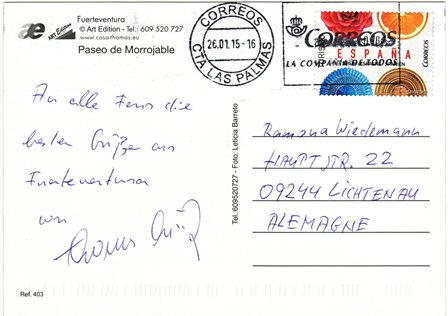 ae ART Edition
Fuerteventura
© Art Edition - Tel.: 609 520 727
www.casathomas.eu
Paseo de Morrojable
CORREOS
26.01.15-16
CTA LAS PALMAS
CORREOS
LA COMPAÑIA DE TODOS
ESPAÑA
CORREOS
An alle Fans die
besten Grüße aus
Fuerteventura
von
Thomas
Tel.:609520727 - Foto: Leticia Barreto
Ramona Wiedemann
HAUPTSTR. 22
09244 LICHTENAU
ALEMAGNE
Ref. 403